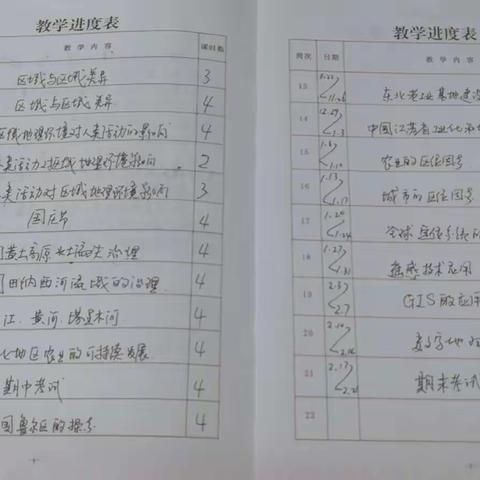 教学进度表
教 学 内 容 课时数
区域与区域差异 3
区域与区域差异 4
区域地理环境对人类活动的影响 4
类活动对区域地理环境影响 2
类活动对区域地理环境影响 3
国庆节 4
黄土高原水土流失治理 4
田纳西河流域的治理 4
江、黄河、塔里木河 4
地区农业的可持续发展 4
期中考试 4
国鲁尔区的探索 4
教学进度表
周次 日期 教 学 内容
13 东北老工业基地建设
14 中国江苏省工业化和城
15 农业的区位因素
16 城市的区位因素
17 1.20 1.24 全球定位系统的
18 1.27 1.31 遥感技术应用
19 2.3 2.7 GIS的应用
20 2.10 数字地
21 2.17 期末考试
22